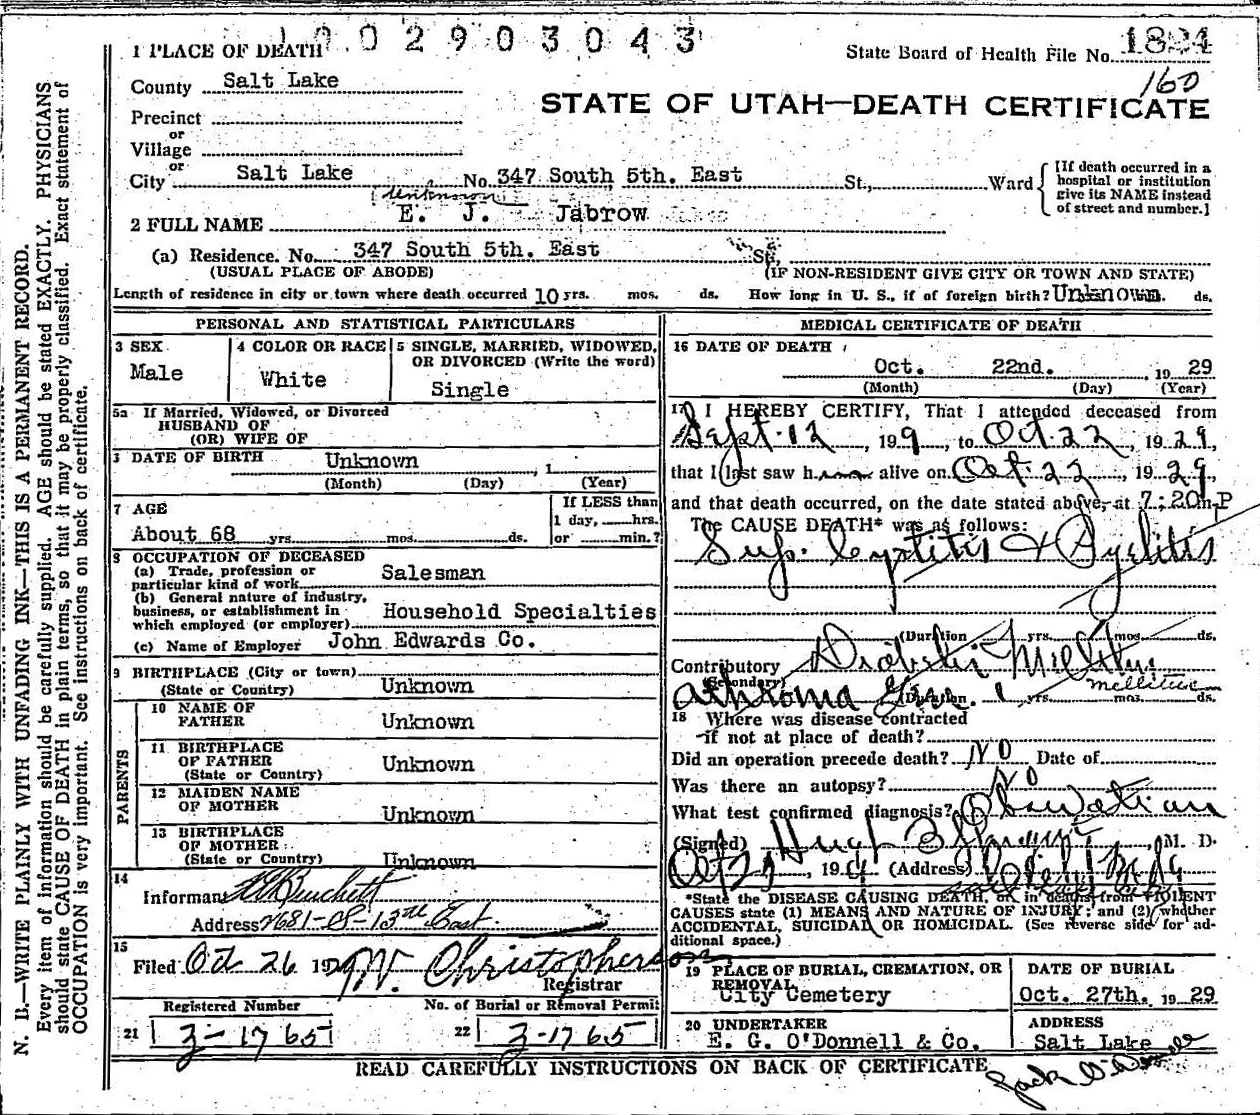 1 PLACE OF DEATH
0 0 2 9 0 3 0 4 3
State Board of Health File No. 1884
160
County Salt Lake
STATE OF UTAH—DEATH CERTIFICATE
Precinct
or
Village
or
City Salt Lake No. 347 South 5th. East St., Ward
[If death occurred in a hospital or institution give its NAME instead of street and number.]
Unknown
2 FULL NAME E. J. Jabrow
(a) Residence. No. 347 South 5th. East St.,
(USUAL PLACE OF ABODE) (IF NON-RESIDENT GIVE CITY OR TOWN AND STATE)
Length of residence in city or town where death occurred 10 yrs. mos. ds. How long in U. S., if of foreign birth? Unknown. ds.
PERSONAL AND STATISTICAL PARTICULARS
3 SEX
Male
4 COLOR OR RACE
White
5 SINGLE, MARRIED, WIDOWED,
OR DIVORCED (Write the word)
Single
5a If Married, Widowed, or Divorced
HUSBAND OF
(OR) WIFE OF
DATE OF BIRTH Unknown , 1
(Month) (Day) (Year)
7 AGE
About 68 yrs. mos. ds.
If LESS than
1 day, hrs.
or min.?
8 OCCUPATION OF DECEASED
(a) Trade, profession or
particular kind of work Salesman
(b) General nature of industry,
business, or establishment in
which employed (or employer) Household Specialties
(c) Name of Employer John Edwards Co.
9 BIRTHPLACE (City or town)
(State or Country) Unknown
PARENTS
10 NAME OF
FATHER Unknown
11 BIRTHPLACE
OF FATHER Unknown
(State or Country)
12 MAIDEN NAME
OF MOTHER Unknown
13 BIRTHPLACE
OF MOTHER
(State or Country) Unknown
14
Informant
Address 2681-S-13th East
15
Filed Oct 26 1929 W. Christopherson
Registrar
Registered Number
21 3-1765
No. of Burial or Removal Permit
22 3-1765
MEDICAL CERTIFICATE OF DEATH
16 DATE OF DEATH
Oct. 22nd. , 19 29
(Month) (Day) (Year)
17 I HEREBY CERTIFY, That I attended deceased from
Sept. 12 , 19 9 , to Oct. 22 , 19 29,
that I last saw him alive on Oct. 22 , 19 29,
and that death occurred, on the date stated above, at 7:20m P
The CAUSE DEATH* was as follows:
Sup. Cystitis & Pyelitis
(Duration 1 yrs. mos. ds.
Contributory Diabetis Mellitus
(Secondary) mellitus
Athroma Gen. (Duration 1 yrs. mos. ds.
18 Where was disease contracted
if not at place of death?
Did an operation precede death? No Date of
Was there an autopsy? No
What test confirmed diagnosis? Observation
(Signed) Hugh B , M. D.
Oct , 19 (Address)
*State the DISEASE CAUSING DEATH, or in deaths from VIOLENT
CAUSES state (1) MEANS AND NATURE OF INJURY; and (2) whether
ACCIDENTAL, SUICIDAL OR HOMICIDAL. (See reverse side for ad-
ditional space.)
19 PLACE OF BURIAL, CREMATION, OR
REMOVAL
City Cemetery
DATE OF BURIAL
Oct. 27th. 19 29
20 UNDERTAKER
E. G. O'Donnell & Co.
ADDRESS
Salt Lake
READ CAREFULLY INSTRUCTIONS ON BACK OF CERTIFICATE
Jack O'Donnell
N. B.—WRITE PLAINLY WITH UNFADING INK—THIS IS A PERMANENT RECORD.
Every item of information should be carefully supplied. AGE should be stated EXACTLY. PHYSICIANS
should state CAUSE OF DEATH in plain terms, so that it may be properly classified. Exact statement of
OCCUPATION is very important. See instructions on back of certificate.